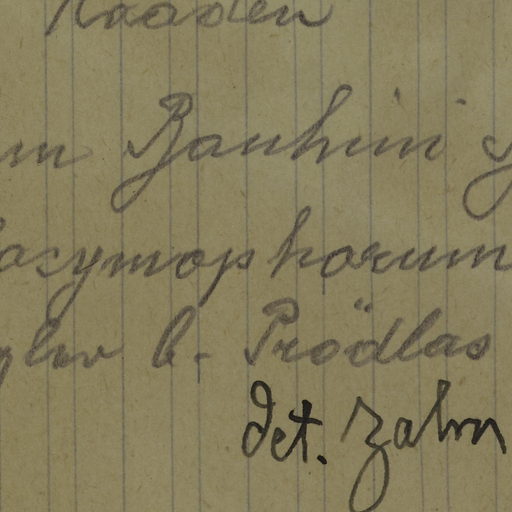 Kaaden
m Bauhini s
asymophorum
b. Prödlas
det. Zahn